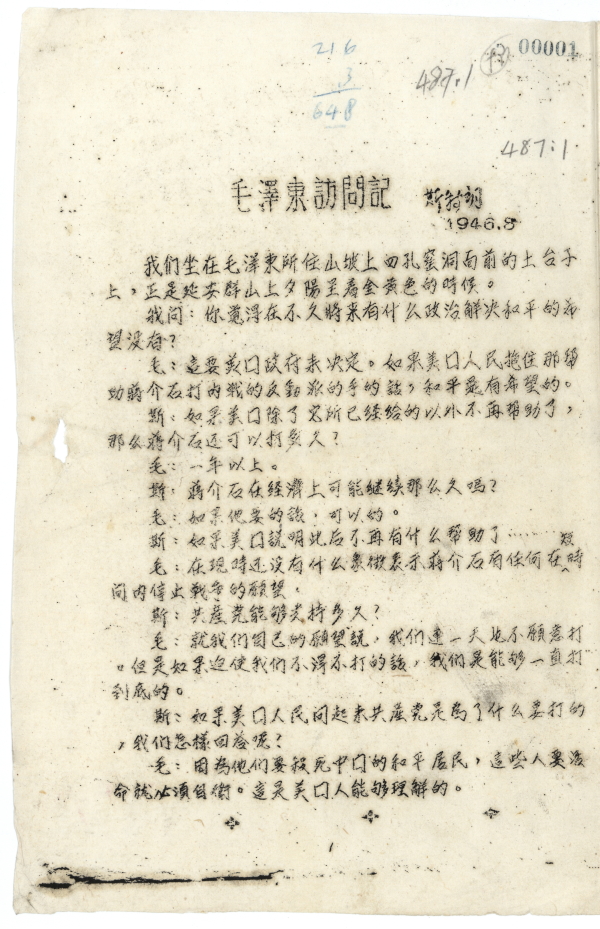 216
3
648
487:1
00001
487:1
毛澤東訪問記
斯特朗
1946.8
我们坐在毛澤東所住山坡上四孔窰洞前面的土台子
上，正是延安群山上夕陽呈着金黄色的時候。
我问：你觉得在不久將来有什么政治解决和平的希
望没有？
毛：這要美囗政府来决定。如果美囗人民拖住那帮
助蔣介石打内战的反動派的手的話，和平是有希望的。
斯：如果美囗除了它所已经给的以外不再帮助了，
那么蔣介石还可以打多久？
毛：一年以上。
斯：蔣介石在经濟上可能继续那么久嗎？
毛：如果他要的話，可以的。
斯：如果美囗説明此后不再有什么帮助了………
毛：在现時还没有什么象徵表示蔣介石有任何在短時
间内停止戰争的願望。
斯：共産党能够支持多久？
毛：就我们自己的願望説，我们連一天也不願意打
。但是如果迫使我们不得不打的話，我们是能够一直打
到底的。
斯：如果美囗人民问起来共産党是為了什么要打的
，我们怎樣回答呢？
毛：因為他们要殺死中囗的和平居民，這些人要活
命就必須自衛。這是美囗人能够理解的。
1